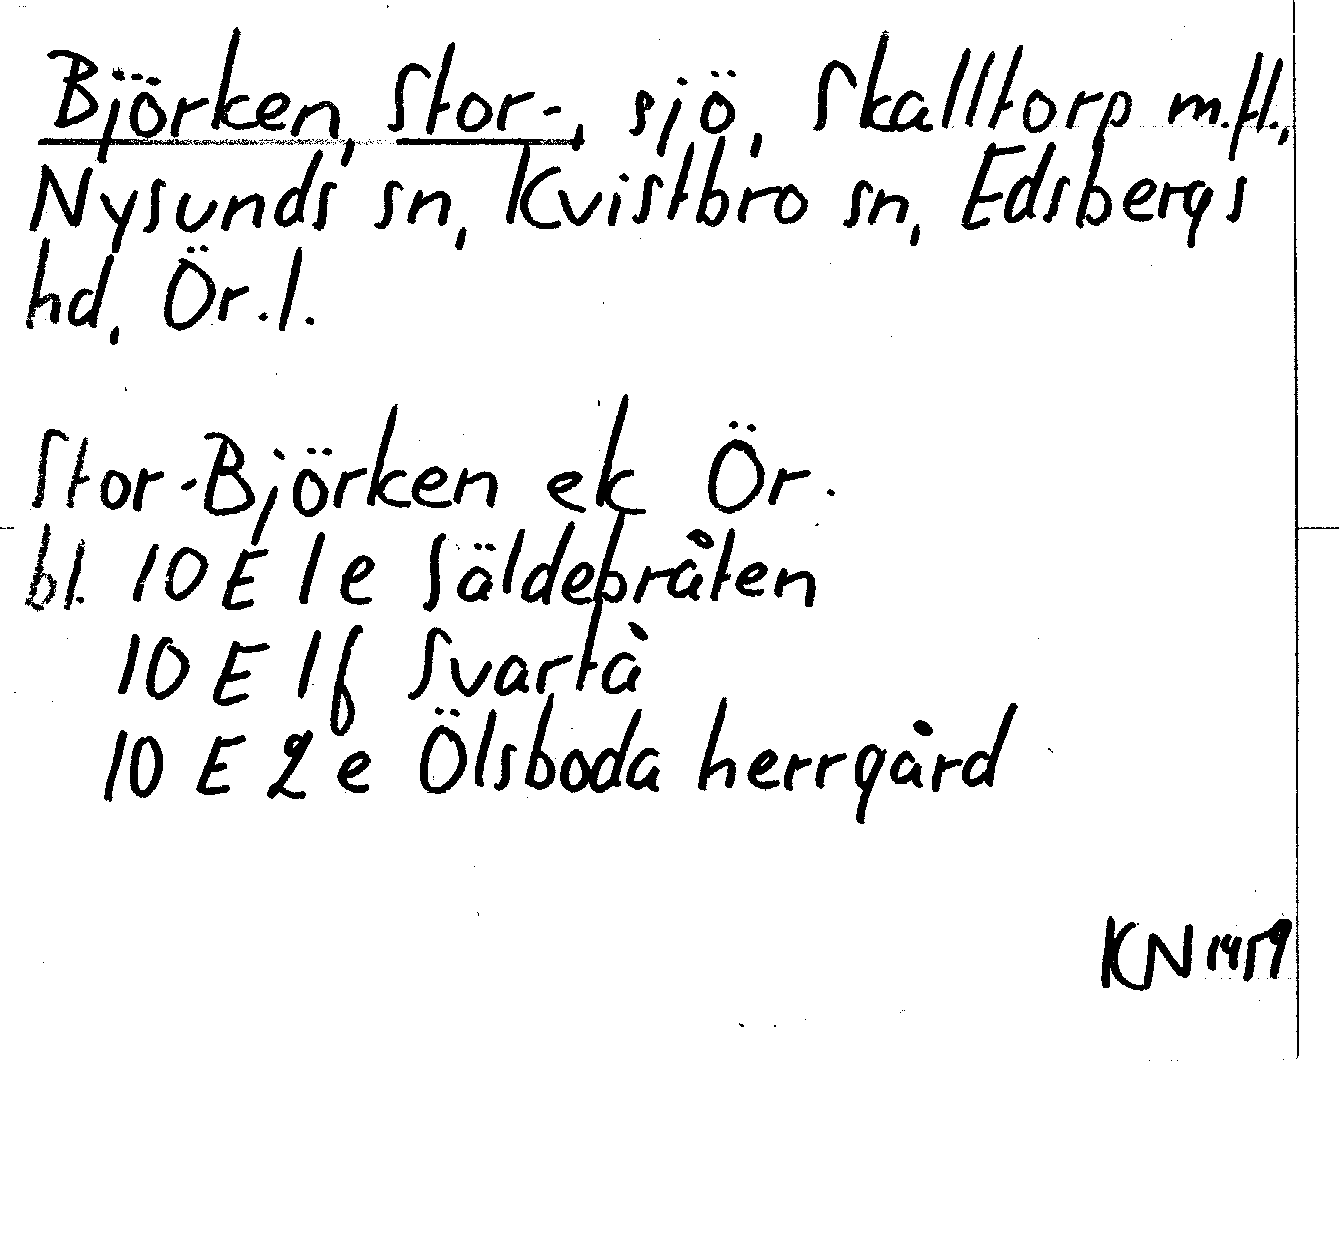 Björken, Stor-, sjö, Skalltorp m.fl.,
Nysunds sn, Kvistbro sn, Edsbergs
hd, Ör.l.
Stor-Björken ek Ör.
bl. 10 E 1e Säldebråten
10 E 1f Svartå
10 E 2e Ölsboda herrgård
KN 1459